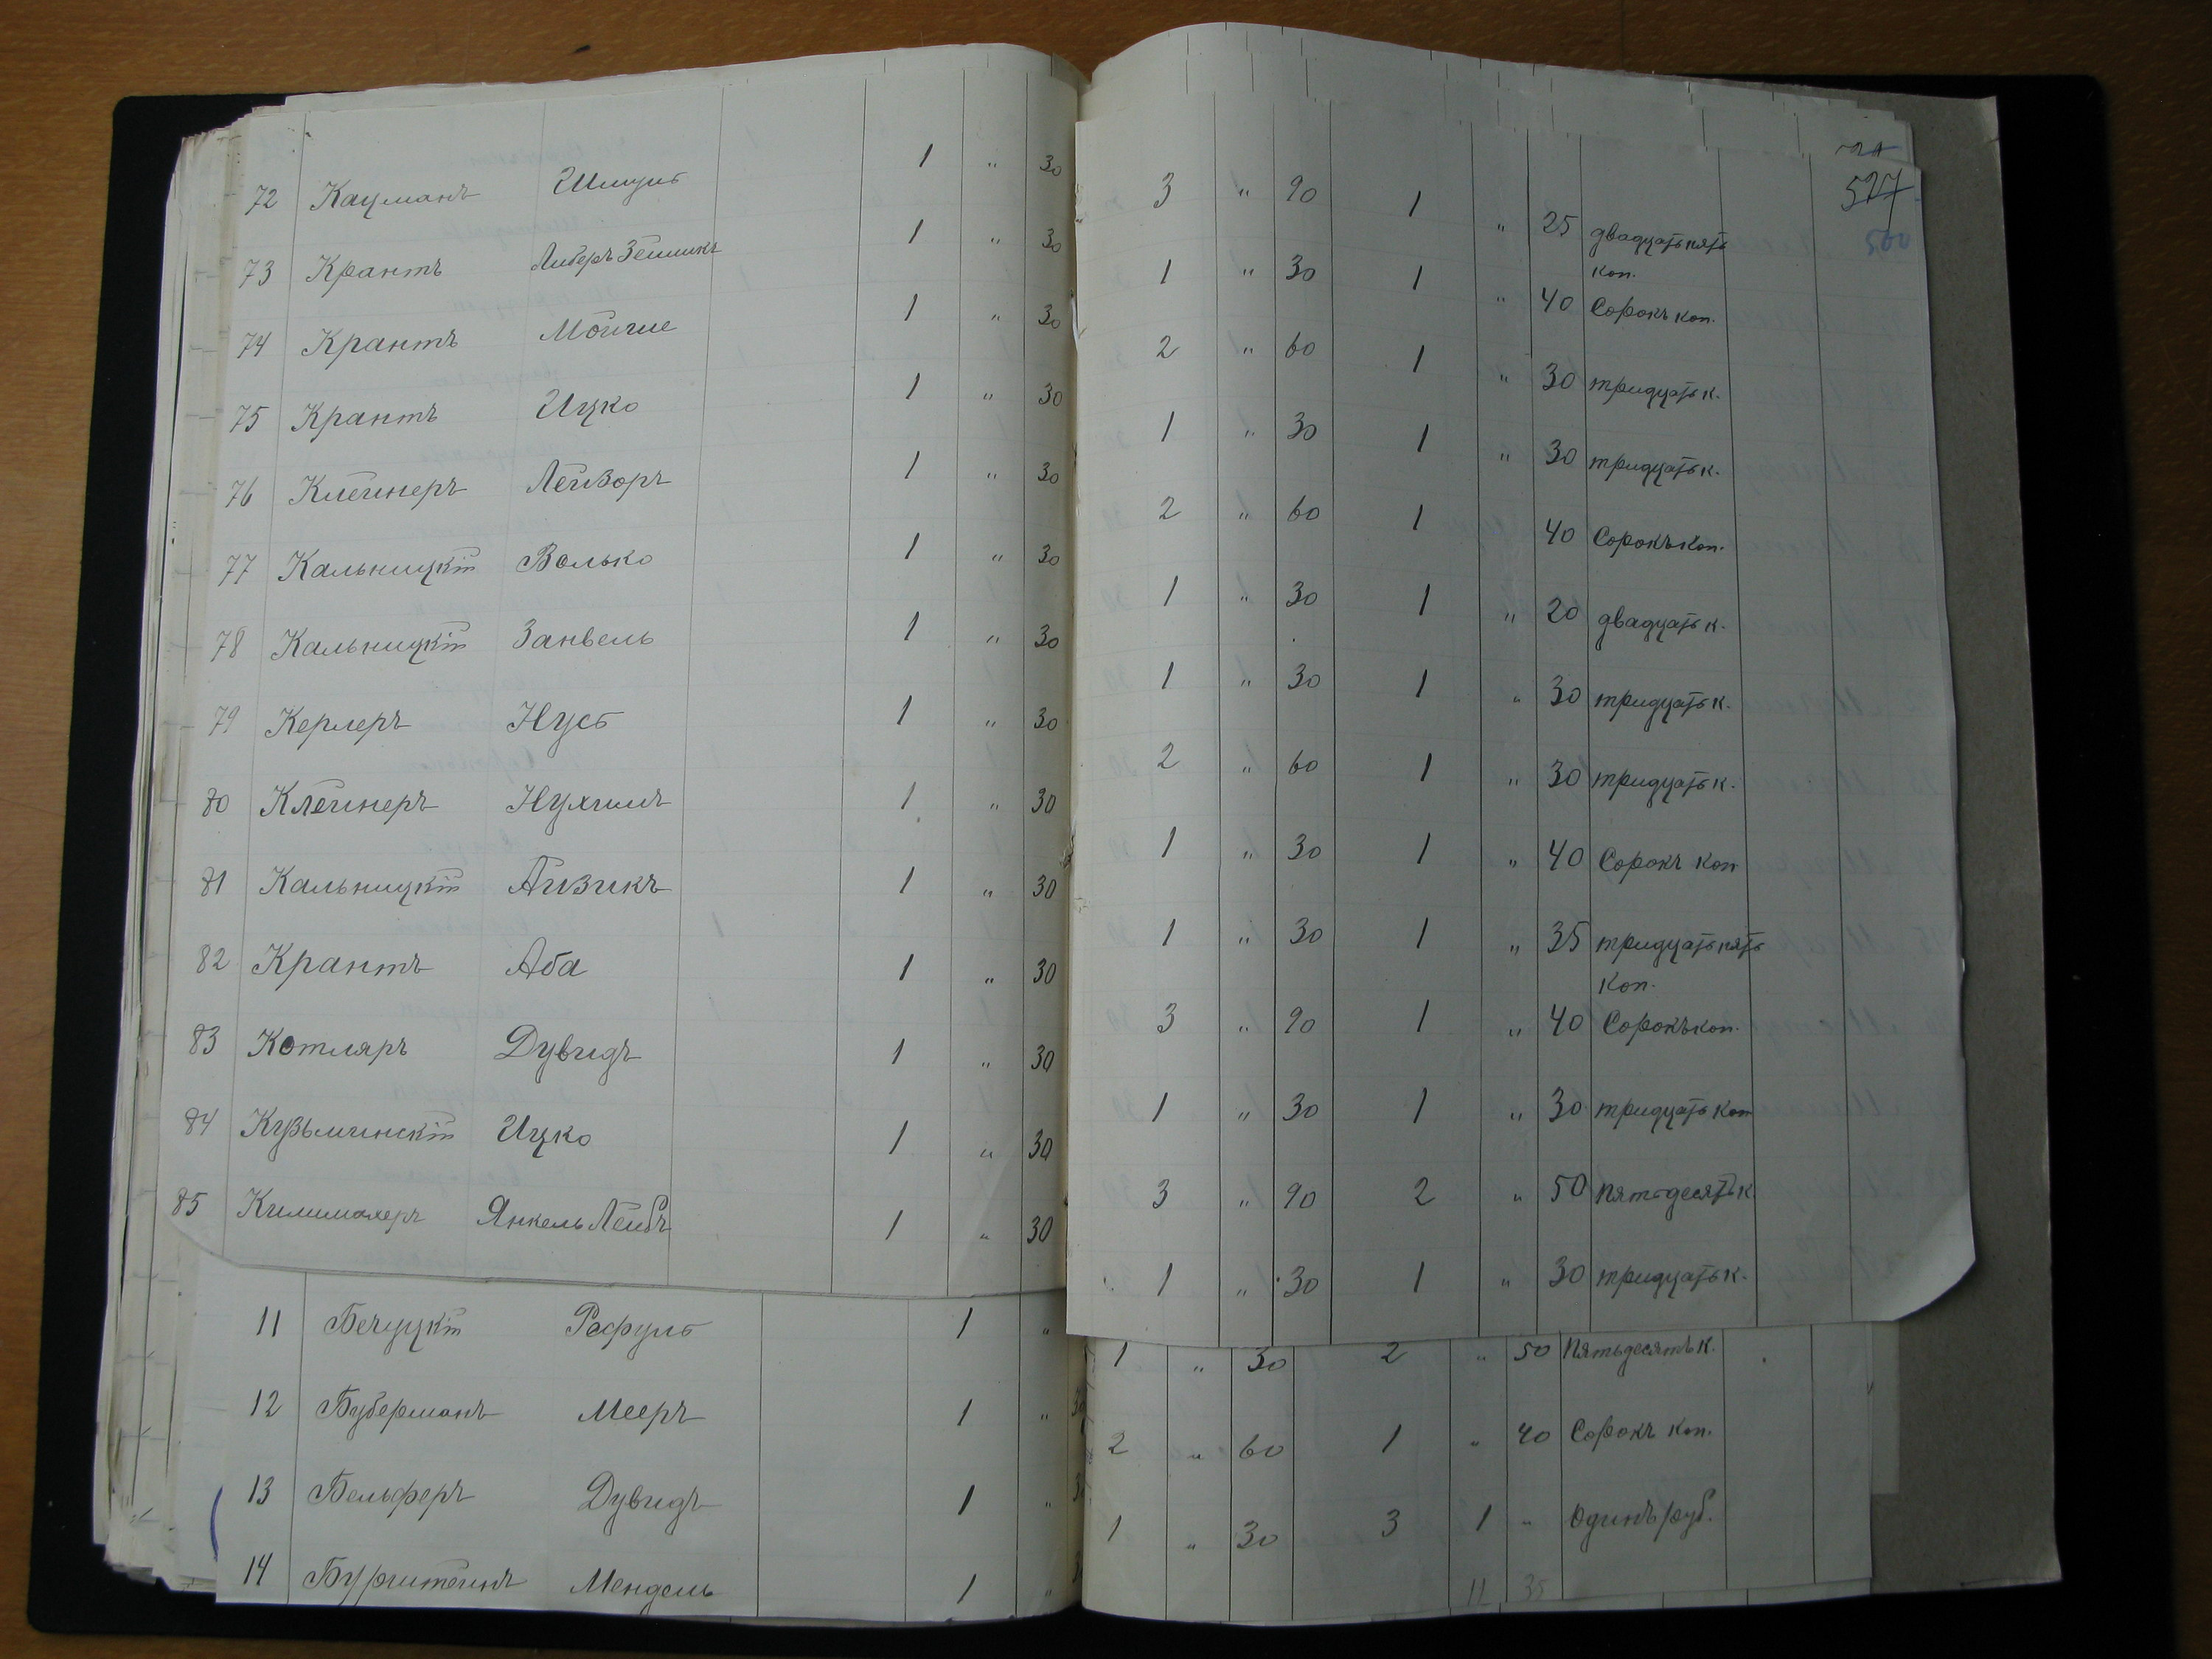 72 Кауманъ Шмуль 1 " 30 3 " 90 1 " 25 двадцать пять
коп.
73 Крантъ Либеръ Зейликъ 1 " 30 1 " 30 1 " 40 Сорокъ коп.
74 Крантъ Мойше 1 " 30 2 " 60 1 " 30 тридцать к.
75 Крантъ Ицко 1 " 30 1 " 30 1 " 30 тридцать к.
76 Клейнеръ Лейзоръ 1 " 30 2 " 60 1 40 Сорокъ коп.
77 Кальницкій Волько 1 " 30 1 " 30 1 " 20 двадцать к.
78 Кальницкій Занвель 1 " 30 1 " 30 1 " 30 тридцать к.
79 Керлеръ Нусъ 1 " 30 2 " 60 1 " 30 тридцать к.
80 Клейнеръ Нухимъ 1 " 30 1 " 30 1 " 40 Сорокъ коп
81 Кальницкій Айзикъ 1 " 30 1 " 30 1 " 35 тридцать пять
коп.
82 Крантъ Аба 1 " 30 3 " 90 1 " 40 Сорокъ коп.
83 Котляръ Дувидъ 1 " 30 1 " 30 1 " 30 тридцать коп
84 Кузьминскій Ицко 1 " 30 3 " 90 2 " 50 пятьдесятъ к.
85 Килимахеръ Янкель Лейбъ 1 " 30 1 " 30 1 " 30 тридцать к.
527
500
11 Бечуцкій Рафуль 1 " 1 " 30 2 " 50 пятьдесятъ к.
12 Буберманъ Мееръ 1 " 30 2 " 60 1 " 40 Сорокъ коп.
13 Бельферъ Дувидъ 1 " 1 " 30 3 1 " Одинъ руб.
14 Бурштейнъ Мендель 1 "
11 35